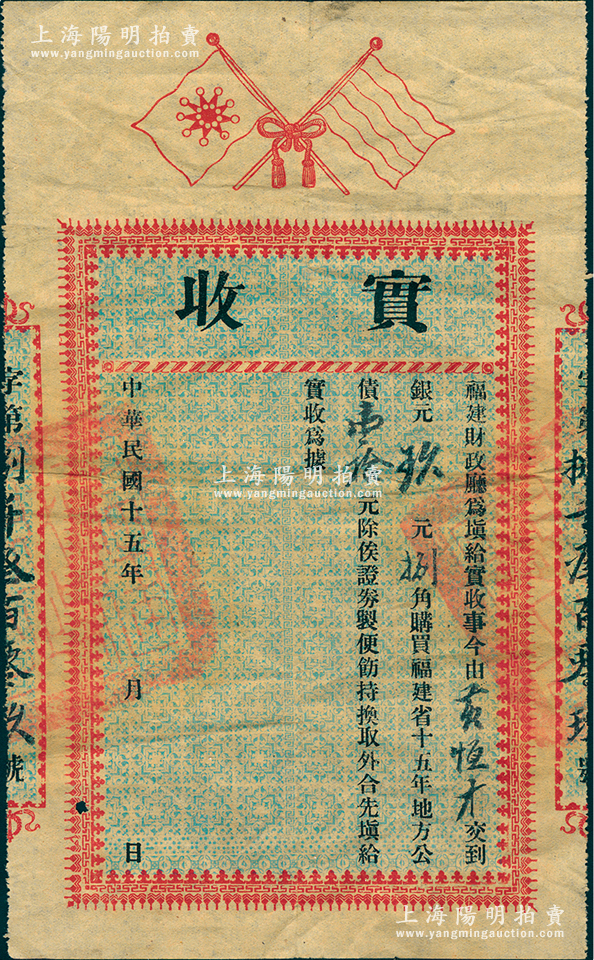 上海陽明拍賣
www.yangmingauction.com
實收
福建財政廳爲塡給實收事今由黃恒才交到
銀元玖元捌角購買福建省十五年地方公
債壹拾元除俟證券製便飭持換取外合先塡給
實收爲據
中華民國十五年 月 日
上海陽明拍賣
www.yangmingauction.com
字第捌千叁百叁拾玖號
上海陽明拍賣
www.yangmingauction.com